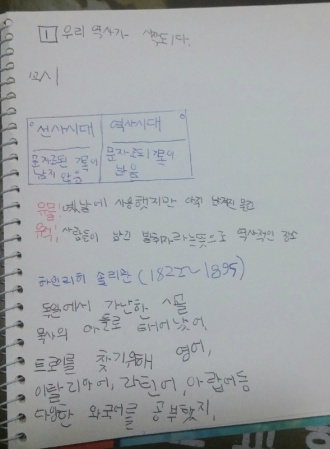 1 우리 역사가
선사시대 역사시대
문자로된 기록이 문자로된 기록이
남지 않음 남음
유물: 옛날에 사용했지만 아주 물건
유적: 사람들이 남긴 라는뜻으로 역사적인 장소
하인리히 슐리만 (1822~1895)
독일에서 가난한 시골
목사의 아들로 태어났어.
트로이를 찾기위해 영어,
이탈리아어, 라틴어, 아랍어등
다양한 외국어를 공부했지,